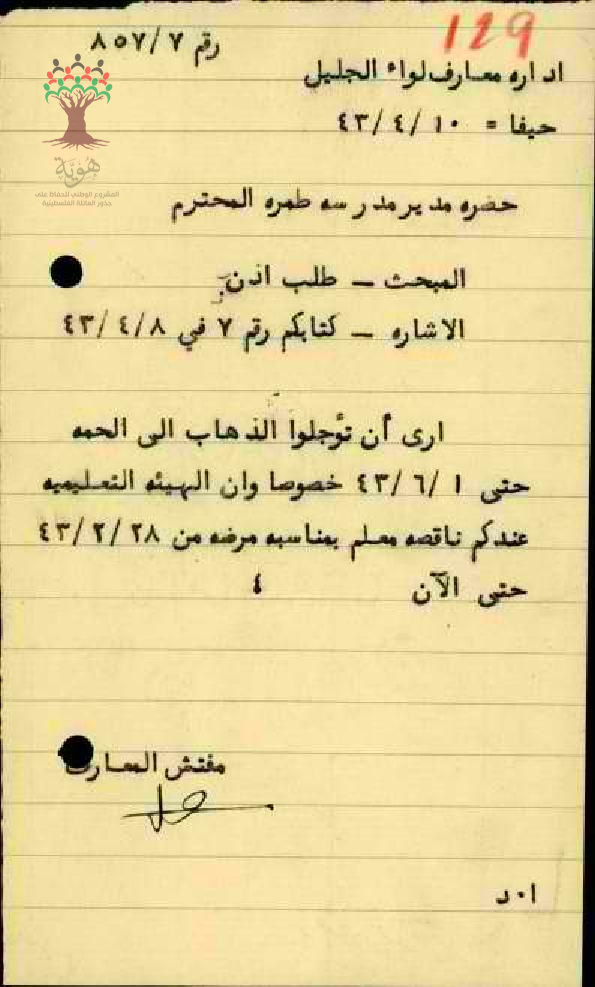 129
رقم ٨٥٧/٧
اداره معارف لواء الجليل
حيفا = ٤٣/٤/١٠
هُويَّة
المشروع الوطني للحفاظ على
جذور العائلة الفلسطينية
حضره مدير مدرسه طمره المحترم
المبحث - طلب اذن
الاشاره - كتابكم رقم ٧ في ٤٣/٤/٨
ارى أن تؤجلوا الذهاب الى الحمه
حتى ٤٣/٦/١ خصوصا وان الهيئه التعليميه
عندكم ناقصه معلم بمناسبه مرضه من ٤٣/٢/٢٨
حتى الآن ٤
مفتش المعارف
ا٠د